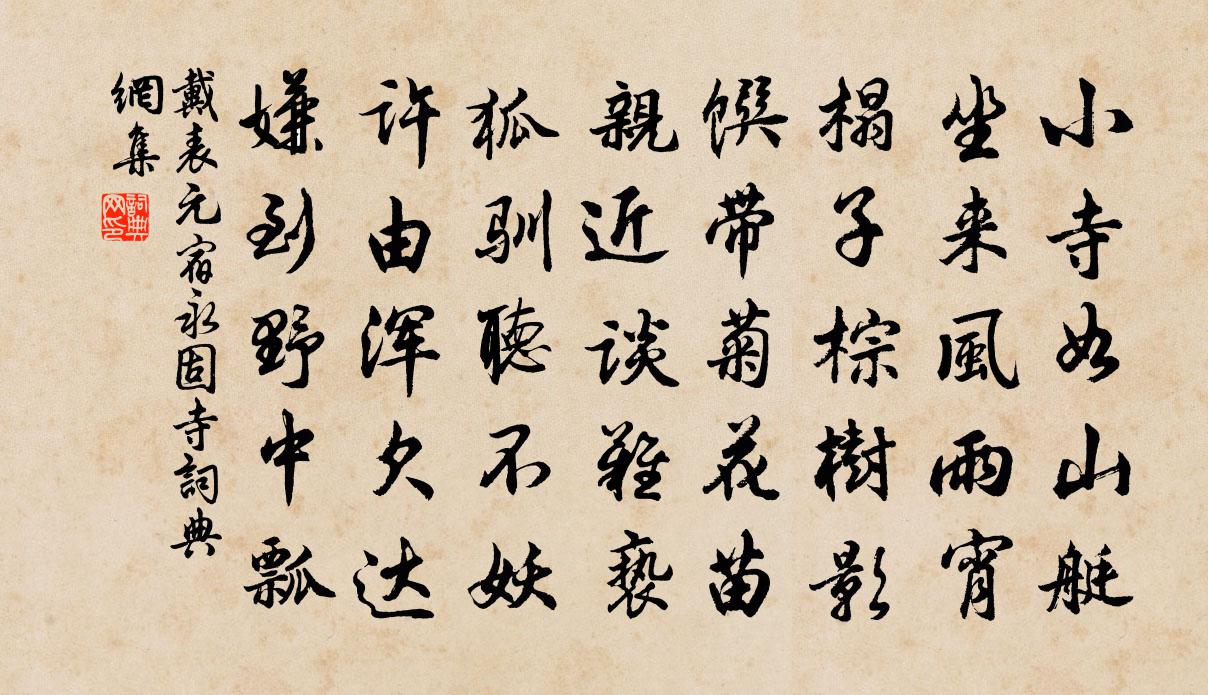 小寺如山艇
坐来風雨宵
榻子棕樹影
饌带菊花苗
親近談難褻
狐馴聽不妖
许由浑欠达
嫌到野中瓢
戴表元宿永固寺詞典
網集
詞典
网印